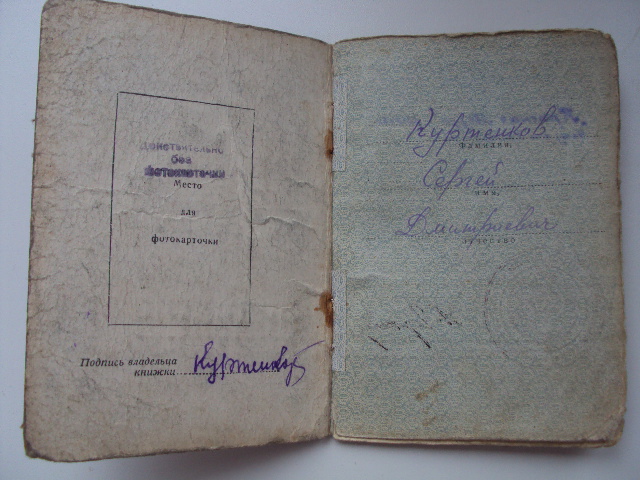 Действительно
без
фотокарточки
Место
для
фотокарточки
Подпись владельца
книжки Куртенков
Куртенков
Фамилия,
Сергей
имя,
Дмитриевич
отчество